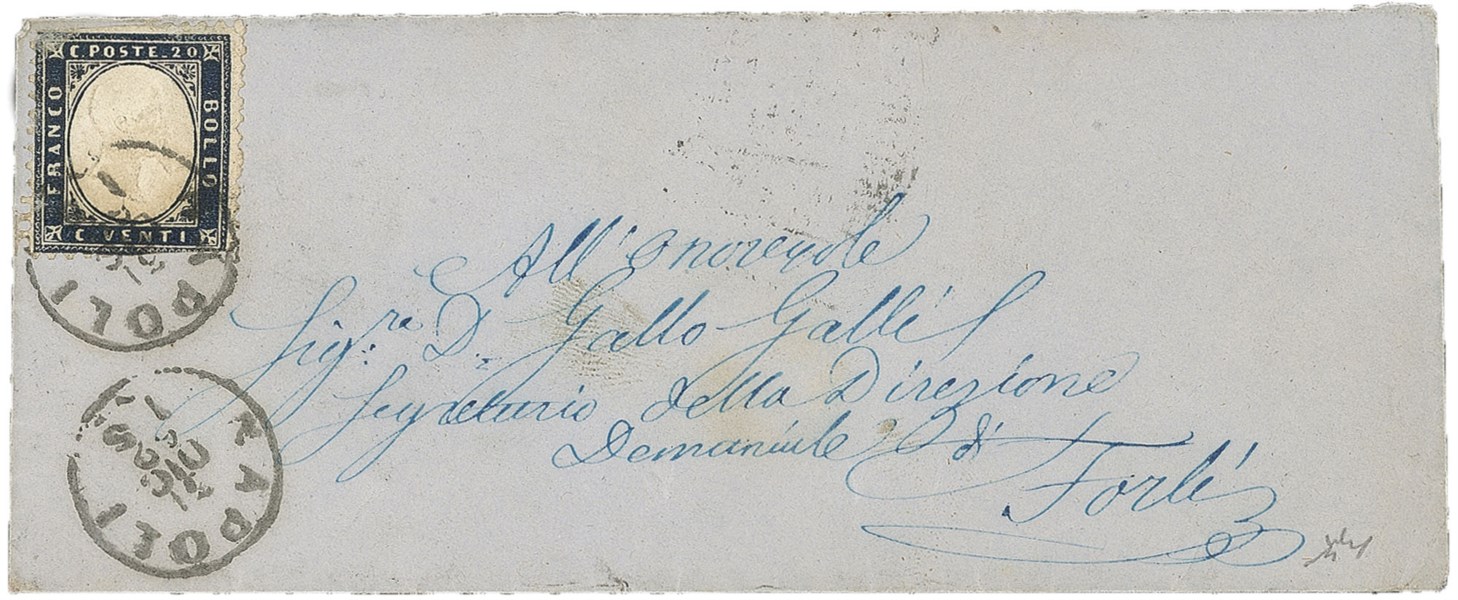 C. POSTE. 20
FRANCO
BOLLO
C. VENTI
NAPOLI
NAPOLI
All' Onorevole
Sig.re D. Gallo Galli
Segretario della Direzione
Demaniale di
Forlì